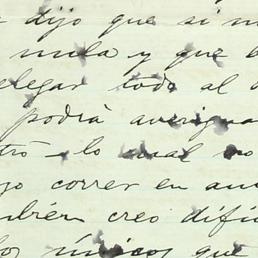 dijo que si m
mula y que
elegar todo al
podrà averigua
tro lo cual no
jo correr en au
mbién creo difí
los únicos que